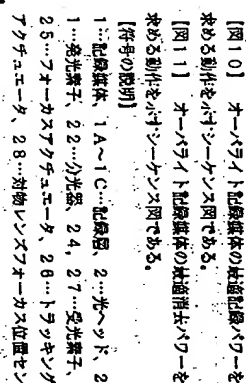 【図10】　オーバライト記録媒体の最適記録パワーを
求める動作を示すシーケンス図である。
【図11】　オーバライト記録媒体の最適消去パワーを
求める動作を示すシーケンス図である。
【符号の説明】
1…記録媒体、1A～1C…記録層、2…光ヘッド、2
1…発光素子、22…分光器、24，27…受光素子、
25…フォーカスアクチュエータ、26…トラッキング
アクチュエータ、28…対物レンズフォーカス位置セン